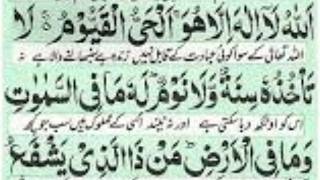 اَللّٰهُ لَاۤ اِلٰهَ اِلَّا هُوَۚ اَلْحَیُّ الْقَیُّوْمُ ۚ لَا
اللہ تعالیٰ کے سوا کوئی عبادت کے قابل نہیں زندہ ہے سنبھالنے والا ہے نہ
تَاْخُذُهٗ سِنَةٌ وَّلَا نَوْمٌؕ لَهٗ مَا فِی السَّمٰوٰتِ
اس کو اونگھ دبا سکتی ہے اور نہ نیند اسی کے مملوک ہیں سب جو کچھ
وَمَا فِی الْاَرْضِؕ مَنْ ذَا الَّذِیْ یَشْفَعُ